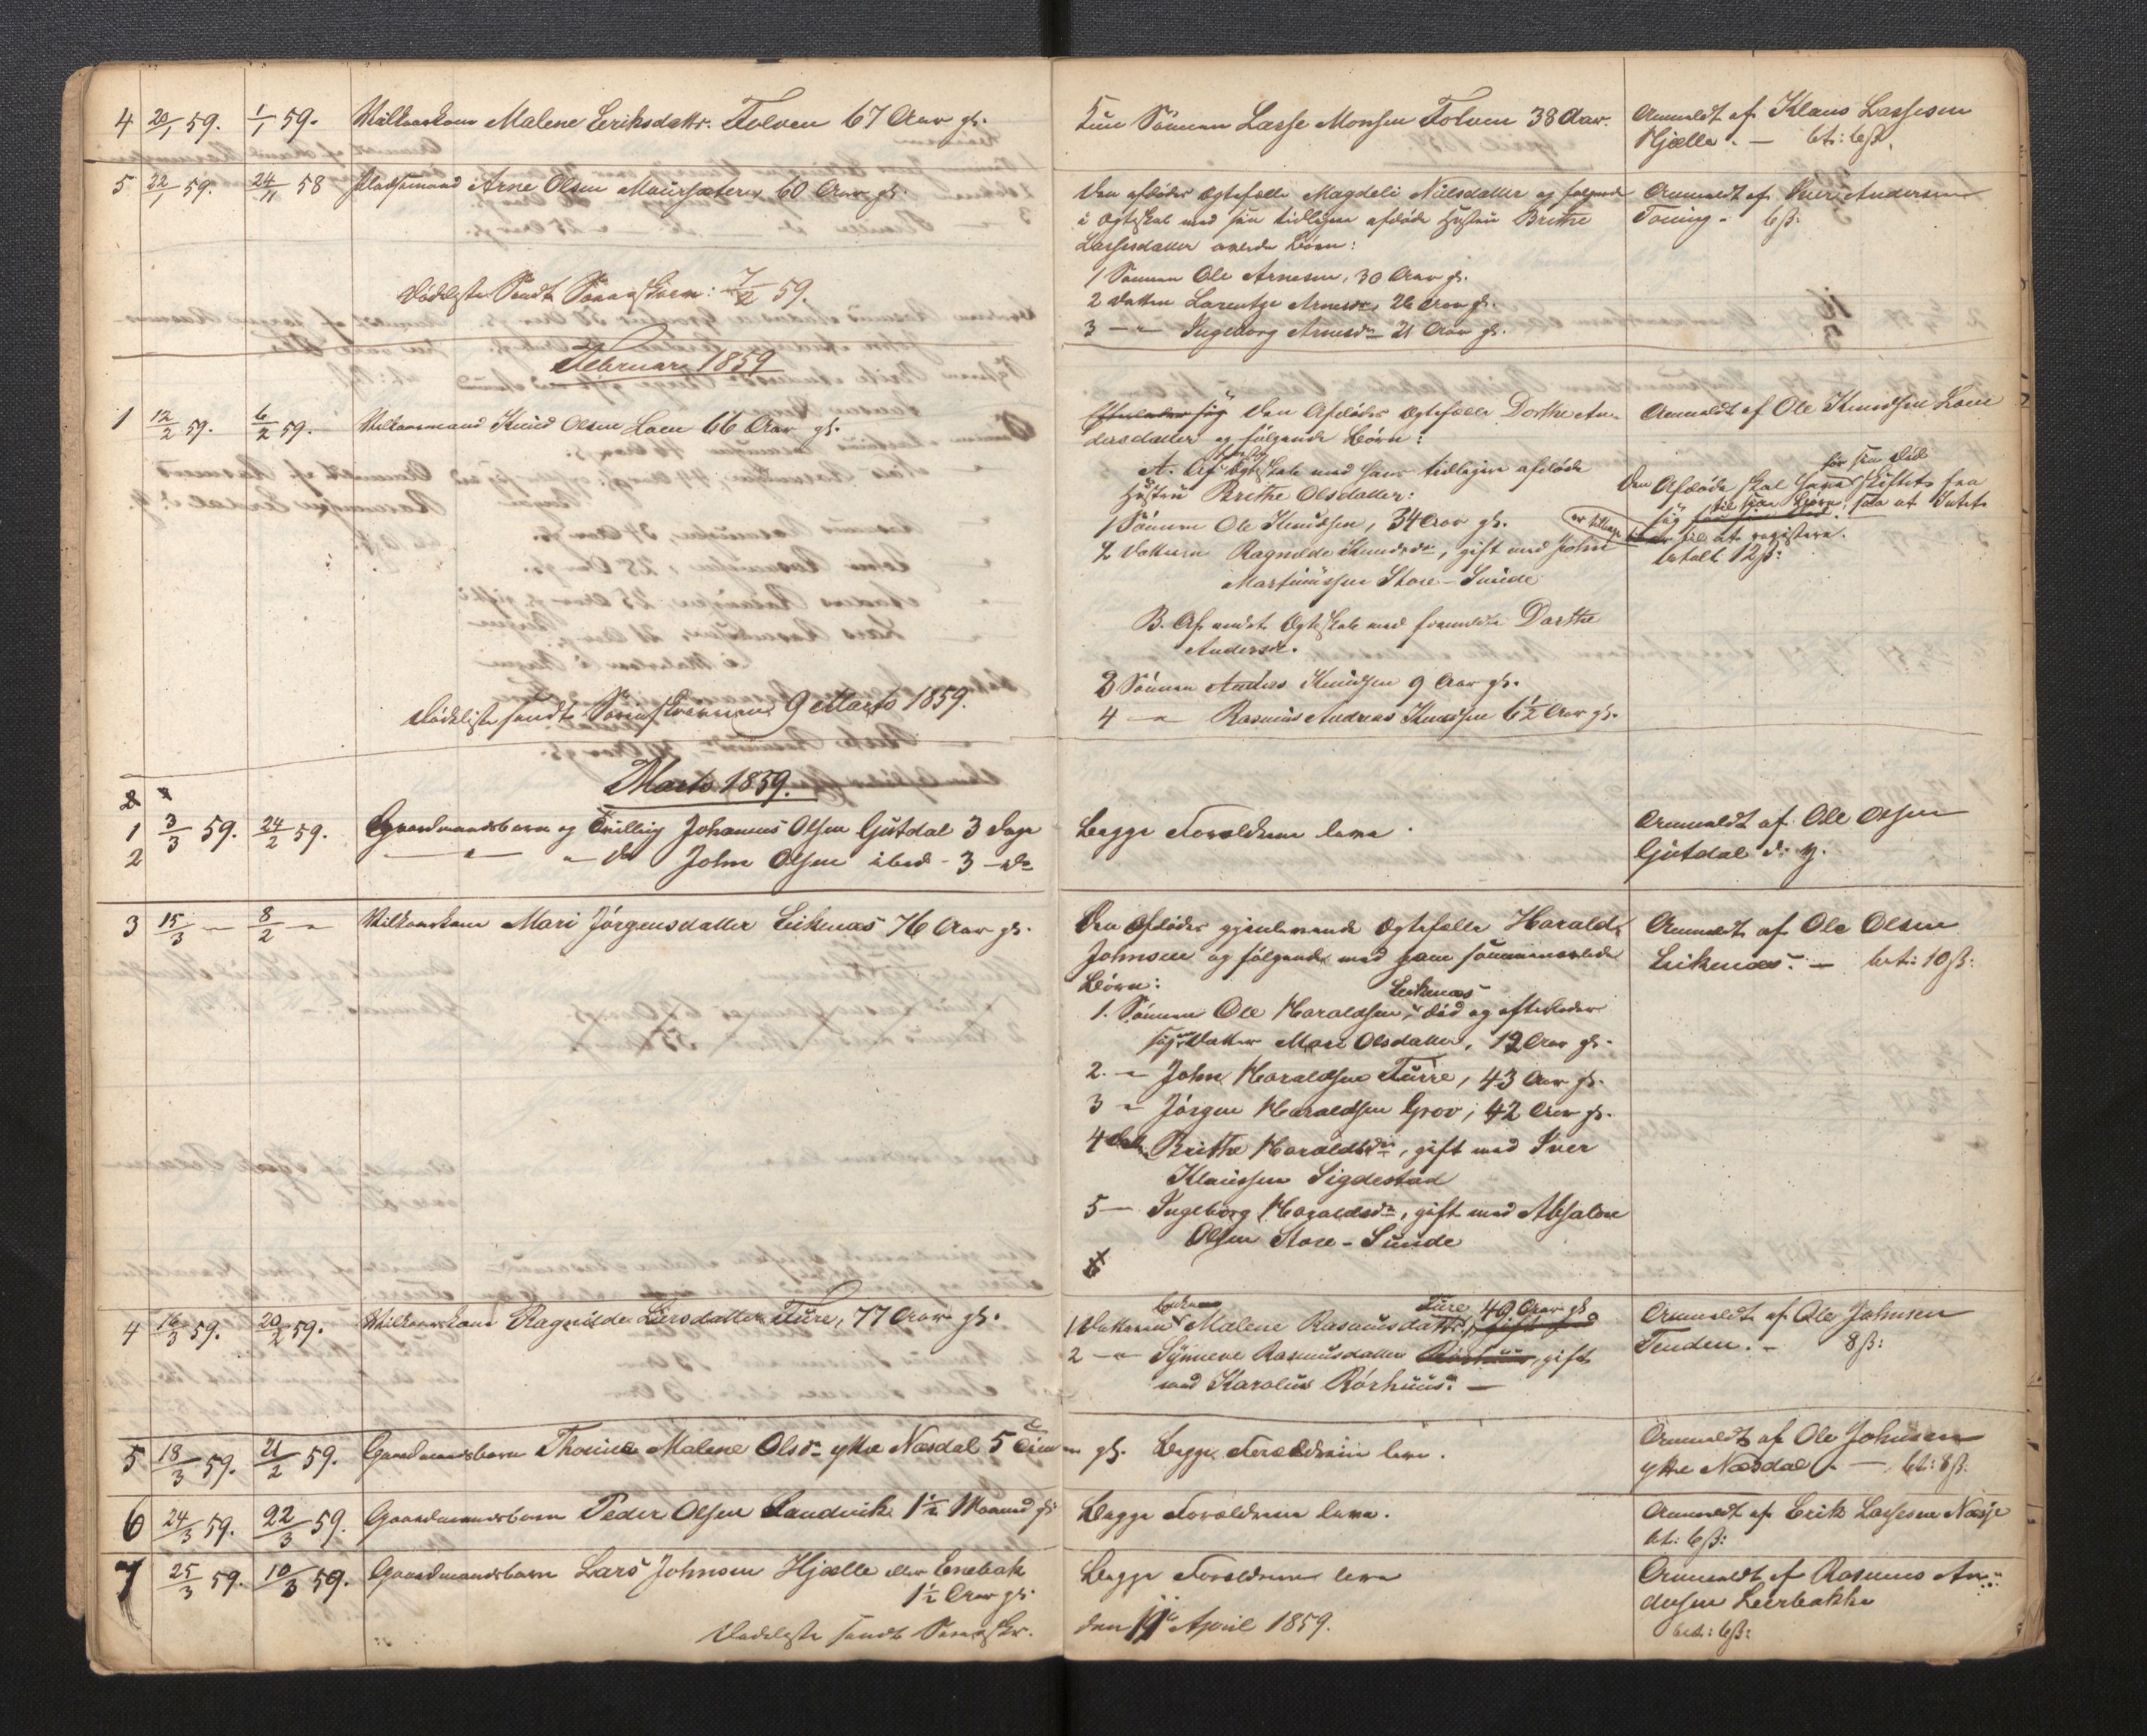 4 20/1 59. 1/1 59. Vilkaarskone Malene Eriksdattr. Tolven 67 Aar gl.
Kun Sönnen Lasse Monsen Tolven 38 Aar.
Anmeldt af Klaus Lassesen
Hjelle. — bet: 6ß.
5 22/1 59. 24/11 58 Pladsemand Arne Olsen Maursæteren 60 Aar gl.
Den afdödes Ægtefælle Magdeli Nielsdatter og følgende
i Ægteskab med sin tidligere afdöde Hustru Brithe
Lassesdatter avlede Börn:
1 Sönnen Ole Arnesen, 30 Aar gl.
2 Datten Larentze Arnesdr 26 Aar gl.
3 — " Ingeborg Arnesdr 21 Aar gl.
Anmeldt af Iver Andersen
Toning. 6ß:
Dödsliste Sendt Sorenskriv: 7/2 59.
Februar 1859
1 12/2 59. 6/2 59. Vilkaarsmand Knud Olsen Loen 66 Aar gl.
Efterlader sig Den Afdödes Ægtefælle Dorthe An-
dersdatter og fölgende Börn:
A. Af Ægteskab med hans tidligere afdöde
Hustru Brithe Olsdatter:
1 Sönnen Ole Knudsen, 34 Aar gl.
2 Datteren Ragnilde Knudsdr, gift med John
Martinussen Store-Sunde
B. Af andet Ægteskab med formeldte Dorthe
Andersdr.
3 Sönnen Anders Knudsen 9 Aar gl.
4 — " Rasmus Andreas Knudsen 6 1/2 Aar gl.
Anmeldt af Ole Knudsen Loen
för sin Död
Den Afdöde skal have skiftet fra
sig til sine Börn, saa at Intet
er tilbage til at registere.
betalt 12ß:
Dödsliste sendt Sorenskriveren 9 Marts 1859.
Marts 1859.
1 3/3 59. 24/2 59. Gaardmandsbarn og Tvilling Johannes Olsen Gutdal 3 Dage
2 — " — " Do John Olsen ibid - 3 - Do
Begge Forældrene leve.
Anmeldt af Ole Olsen
Gutdal d. y.
3 15/3 — 8/2 — Vilkaarskone Mari Jörgensdatter Eikenæs 76 Aar gl.
Den Afdödes gjenlevende Ægtefælle Harald
Johnsen og fölgende med ham sammenavlede
Börn:
Eikenæs
1. Sönnen Ole Haraldsen, död og efterlader
sig Datter Mari Olsdatter, 12 Aar gl.
2. — " John Haraldsen Turre, 43 Aar gl.
3 — " Jörgen Haraldsen Grov, 42 Aar gl.
4 Datt Brithe Haraldsdr, gift med Iver
Klaussen Sigdestad
5 — Ingeborg Haraldsdr, gift med Absalon
Olsen Store-Sunde
Anmeldt af Ole Olsen
Eikenæs. — bet: 10ß:
4 16/3 59. 20/2 59. Vilkaarskone Ragnilde Larsdatter Ture, 77 Aar gl.
Ture, 40 Aar gl.
1 Datteren Malene Rasmusdattr, gift med
2 — " Synneve Rasmusdatter gift
med Karolus Rörhuus. —
Anmeldt af Ole Johnsen
Tenden. — 8ß:
5 18/3 59. 21/2 59. Gaardmandsbarn Thomine Malene Olsdr ytre Næsdal 5 gl. Begge Forældrene leve.
Anmeldt af Ole Johnsen
ytre Næsdal. — bt: 8ß.
6 24/3 59. 22/3 59. Gaardmandsbarn Peder Olsen Sandvik 1 1/2 Maaned gl
Begge Forældrene leve.
Anmeldt af Erik Lassesen Næsje
bt: 6ß:
7 25/3 59. 10/3 59. Gaardmandsbarn Lars Johnsen Hjelle eller Enebak
1 1/2 Aar gl.
Begge Forældrene leve
Anmeldt af Rasmus An-
dersen Leerbakke
bet: 6ß:
Dödsliste sendt Sorenskr.
den 11te April 1859.